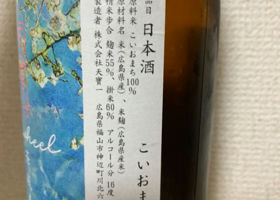 品目 日本酒
原料米 こいおまち100%
原材料名 米(広島県産)、米麹(広島県産米)
精米歩合 麹米55%、掛米60% アルコール分 16度
製造者 株式会社天寶一
広島県福山市神辺町川北六
こいおま